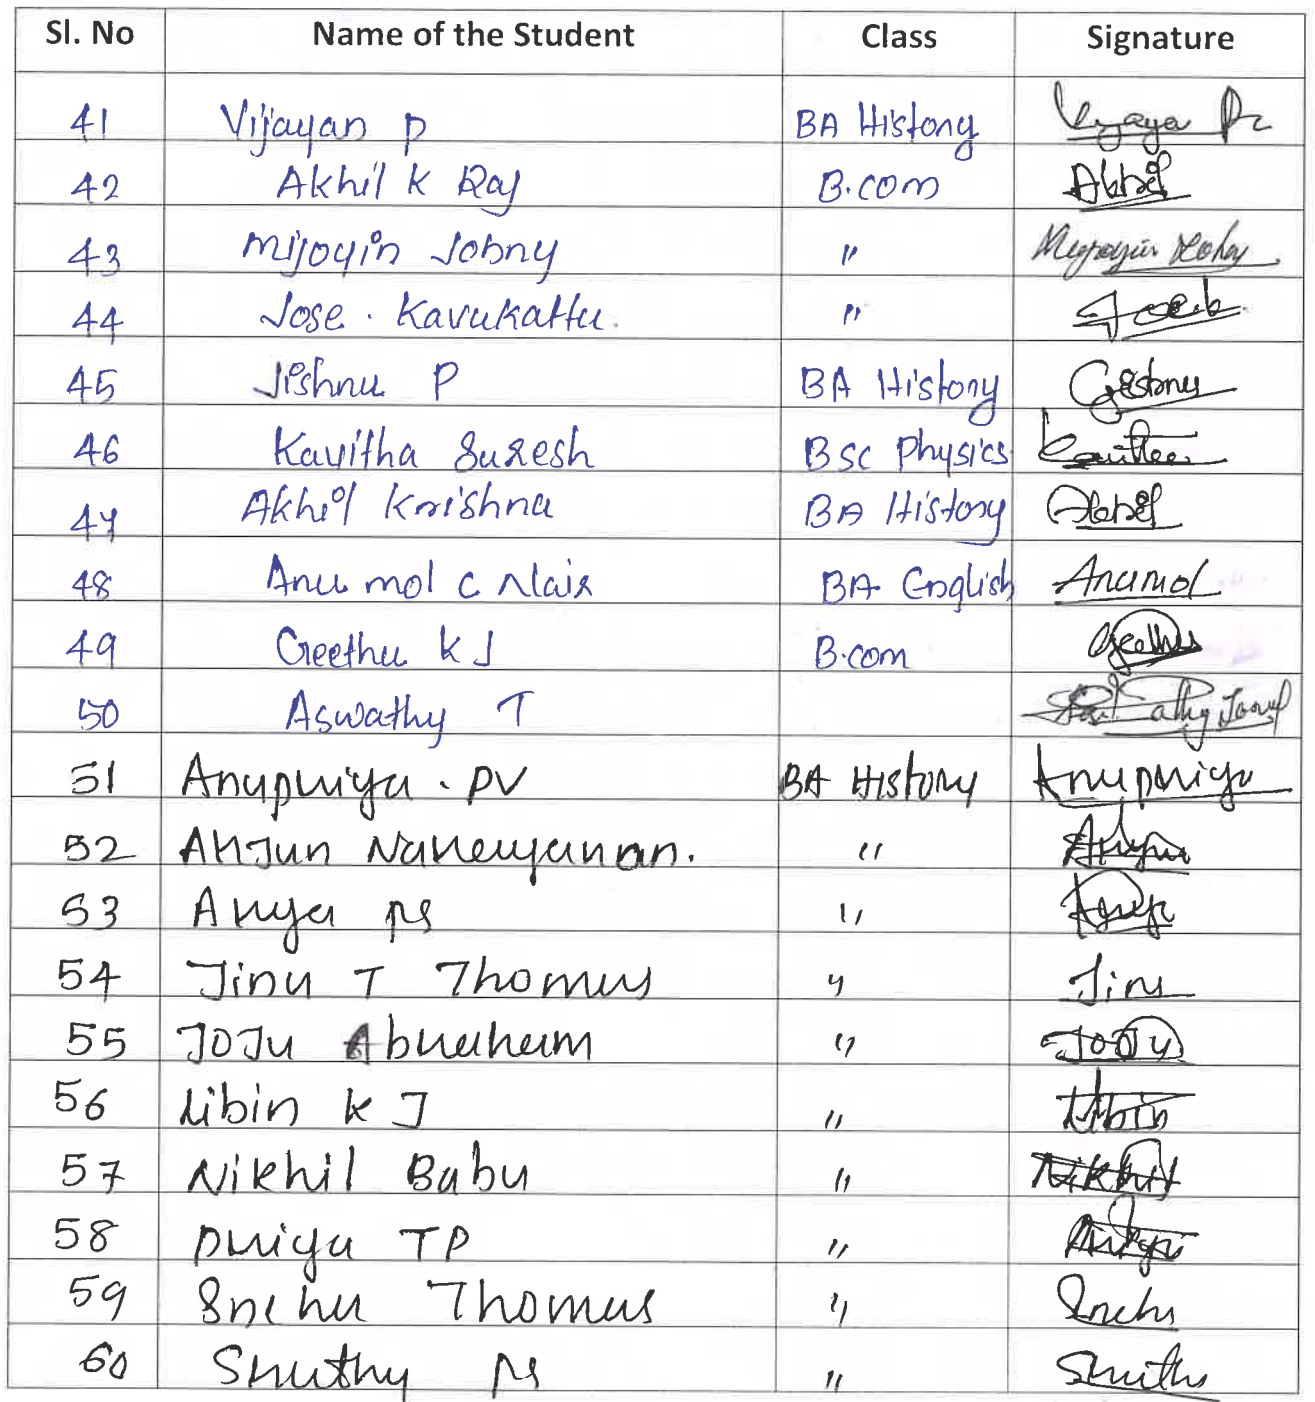 Sl. No Name of the Student Class Signature
41 Vijayan P BA History
42 Akhil K Raj B.com Akhil
43 Mijoyin Johny "
44 Jose . Kavukattu. "
45 Jishnu P BA History
46 Kavitha Suresh BSC Physics
47 Akhil Krishna BA History Akhil
48 Anu mol C Nair BA English Anumol
49 Geethu K J B.com Geethu
50 Aswathy T
51 Anupriya . PV BA History Anupriya
52 Arjun Narayanan. "
53 Arya PS "
54 Jinu T Thomas " Jinu
55 JOJU Abraham " JOJU
56 Libin K J " Libin
57 Nikhil Babu " Nikhil
58 Priya TP "
59 Sneha Thomas " Sneha
60 Shruthy PS "